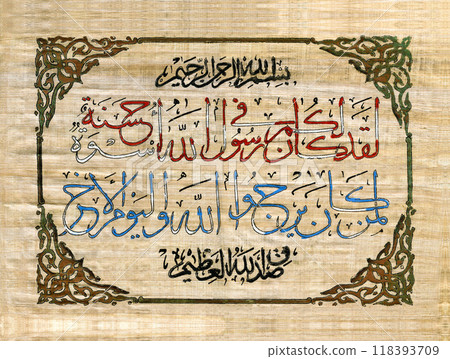 بسم الله الرحمن الرحيم
لقد كان لكم في رسول الله أسوة حسنة
لمن كان يرجوا الله واليوم الآخر
صدق الله العظيم
118393709